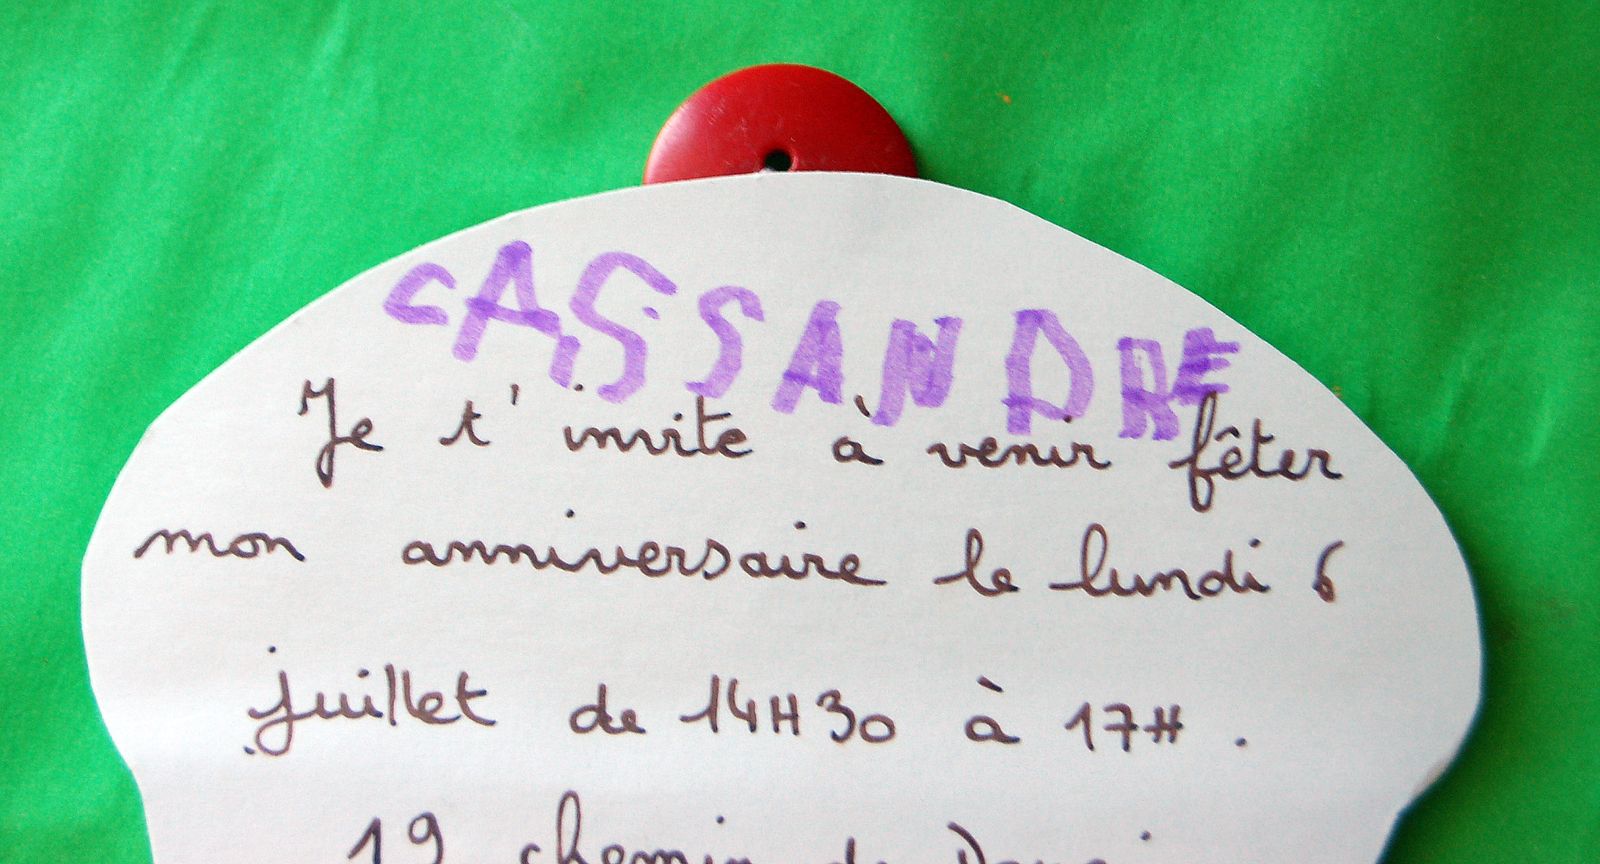 CASSANDRE
Je t'invite à venir fêter
mon anniversaire le lundi 6
juillet de 14H30 à 17H.
19 chemin de